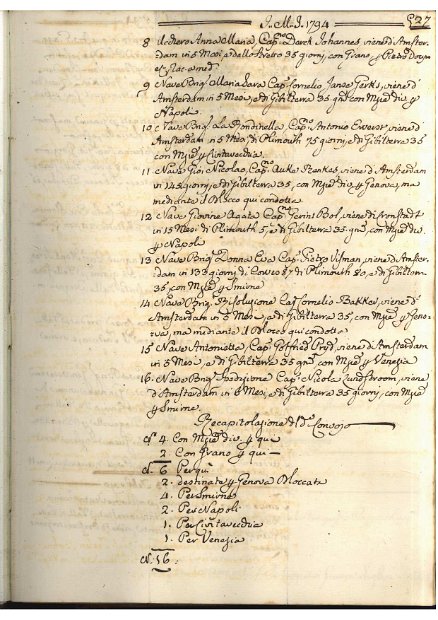 1794 227
8 Ucchero Anna Maria Cap.º Darck Johannes viene d'Amster:
dam in 5 Mesi e dello Stretto 35 giorni, con Grano, y
9 Nave Brig.º Maria Sara Cap.º Cornelio Janse viene d'
Amsterdam in 5 Mesi, e di Gibilterra 35 gni con div.e y
Napoli
10 Nave Brig.º La Rondinella Cap.º Antonio viene d'
Amsterdam in 5 Mesi, di Plimouth 75 giorni, e di Gibilterra 35
con y Civitavecchia
11 Nave Gio: Nicolao, Cap.º Auke viene d'Amsterdam
in 125 giorni, e di Gibilterra 35, con div.e y Genova, ma
mediante il Blocco qui condotta
12 Nave Agata Cap.º Gerrit Bool, viene di Cronstadt
in 15 Mesi di Plimouth 5, e di Gibilterra 35 gni, con div.e
y Napoli
13 Nave Brig.º Donna Eva Cap.º Pietro Visman, viene d'Amster:
dam in 133 giorni, di Cowes 87 di Plimouth 80, e di Gibilterra
35, con y Smirne
14 Nave Brig.º Risoluzione Cap.º Cornelio Bakker, viene d'
Amsterdam in 5 Mesi, e di Gibilterra 35, con y Geno:
va, ma mediante il Blocco qui condotta
15 Nave Antonietta Cap.º Gottfried viene d'Amsterdam
in 5 Mesi, e di Gibilterra 35 gni con y Venezia
16 Nave Brig.º Spedizione Cap.º Nicola viene
d'Amsterdam in 6 Mesi, e di Gibilterra 35 giorni, con
y Smirne
Recapitolazione di d.º Convojo
N.º 4 Con div.e y qui
2 Con Grano y qui
N.º 6 Per qui
2. destinate y Genova Bloccata
4. Per Smirne
2. Per Napoli
1. Per Civitavecchia
1. Per Venezia
N.º 16